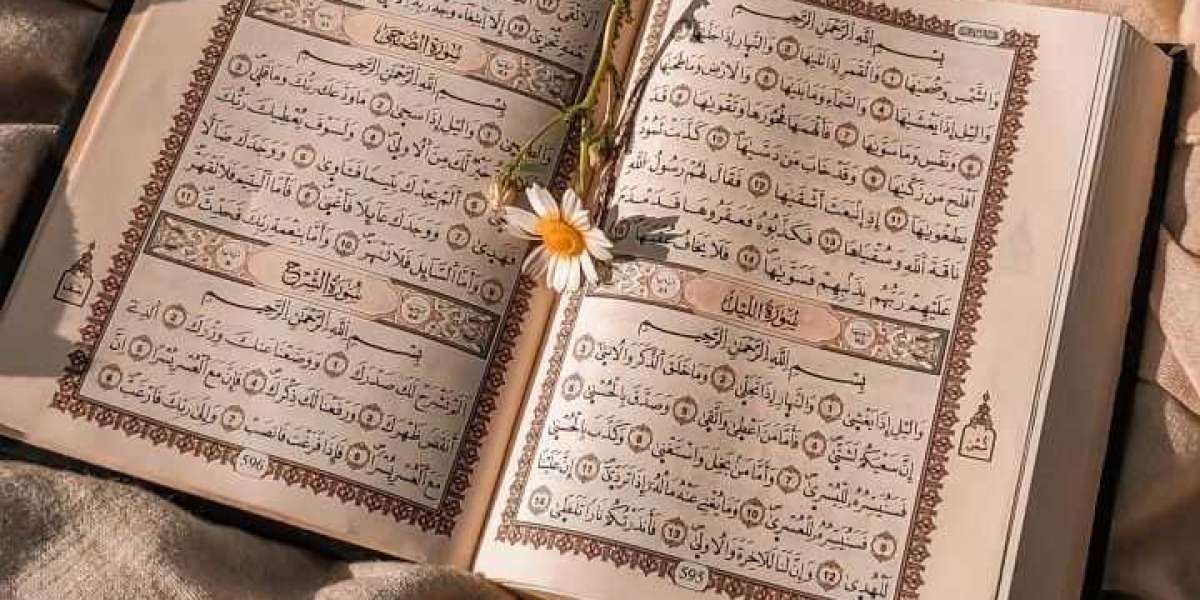 بِسْمِ اللَّهِ الرَّحْمَٰنِ الرَّحِيمِ
وَالشَّمْسِ وَضُحَيٰهَا ① وَالْقَمَرِ إِذَا تَلَيٰهَا ② وَالنَّهَارِ إِذَا
وَالَّيْلِ إِذَا يَغْشَيٰهَا ④ وَالسَّمَآءِ وَمَا بَنَيٰهَا ⑤ وَالْأَرْضِ وَمَا طَحَيٰهَا
⑥ وَنَفْسٍ وَمَا سَوَّيٰهَا ⑦ فَأَلْهَمَهَا فُجُورَهَا وَتَقْوَيٰهَا ⑧ قَدْ
أَفْلَحَ مَن زَكَّيٰهَا ⑨ وَقَدْ خَابَ مَن دَسَّيٰهَا ⑩ كَذَّبَتْ ثَمُودُ
بِطَغْوَيٰهَا ⑪ إِذِ انۢبَعَثَ أَشْقَيٰهَا ⑫ فَقَالَ لَهُمْ رَسُولُ اللَّهِ
نَاقَةَ اللَّهِ وَسُقْيَٰهَا ⑬ فَكَذَّبُوهُ فَعَقَرُوهَا فَدَمْدَمَ
عَلَيْهِمْ رَبُّهُم بِذَنۢبِهِمْ فَسَوَّيٰهَا ⑭ فَلَا يَخَافُ عُقْبَٰهَا ⑮
سُورَةُ اللَّيْلِ
بِسْمِ اللَّهِ الرَّحْمَٰنِ الرَّحِيمِ
وَالَّيْلِ إِذَا يَغْشَىٰ ① وَالنَّهَارِ إِذَا تَجَلَّىٰ ② وَمَا خَلَقَ الذَّكَرَ وَالْأُنثَىٰ ③
إِنَّ سَعْيَكُمْ لَشَتَّىٰ ④ فَأَمَّا مَنْ أَعْطَىٰ وَاتَّقَىٰ ⑤ وَصَدَّقَ بِالْحُسْنَىٰ ⑥
فَسَنُيَسِّرُهُ لِلْيُسْرَىٰ ⑦ وَأَمَّا مَنۢ بَخِلَ وَاسْتَغْنَىٰ ⑧ وَكَذَّبَ بِالْحُسْنَىٰ
⑨ فَسَنُيَسِّرُهُ لِلْعُسْرَىٰ ⑩ وَمَا يُغْنِي عَنْهُ مَالُهُ إِذَا تَرَدَّىٰ ⑪ إِنَّ عَلَيْنَا
لَلْهُدَىٰ ⑫ وَإِنَّ لَنَا لَلْآخِرَةَ وَالْأُولَىٰ ⑬ فَأَنذَرْتُكُمْ نَارًا تَلَظَّىٰ ⑭
595
سُورَةُ الضُّحَىٰ
بِسْمِ اللَّهِ الرَّحْمَٰنِ الرَّحِيمِ
وَالضُّحَىٰ ① وَالَّيْلِ إِذَا سَجَىٰ ② مَا وَدَّعَكَ رَبُّكَ وَمَا قَلَىٰ ③
خَيْرٌ لَّكَ مِنَ الْأُولَىٰ ④ وَلَسَوْفَ يُعْطِيكَ رَبُّكَ
⑤ أَلَمْ يَجِدْكَ يَتِيمًا فَـَٔاوَىٰ ⑥ وَوَجَدَكَ ضَآلًّا
فَهَدَىٰ ⑦ وَوَجَدَكَ عَآئِلًا فَأَغْنَىٰ ⑧ فَأَمَّا الْيَتِيمَ فَلَا تَقْهَرْ
⑨ وَأَمَّا السَّآئِلَ فَلَا تَنْهَرْ ⑩ وَأَمَّا بِنِعْمَةِ رَبِّكَ فَحَدِّثْ ⑪
سُورَةُ الشَّرْحِ
بِسْمِ اللَّهِ الرَّحْمَٰنِ الرَّحِيمِ
أَلَمْ نَشْرَحْ لَكَ صَدْرَكَ ① وَوَضَعْنَا عَنكَ وِزْرَكَ ② الَّذِي
أَنقَضَ ظَهْرَكَ ③ وَرَفَعْنَا لَكَ ذِكْرَكَ ④ فَإِنَّ مَعَ الْعُسْرِ يُسْرًا ⑤ إِنَّ
مَعَ الْعُسْرِ يُسْرًا ⑥ فَإِذَا فَرَغْتَ فَانصَبْ ⑦ وَإِلَىٰ رَبِّكَ فَارْغَب ⑧
596